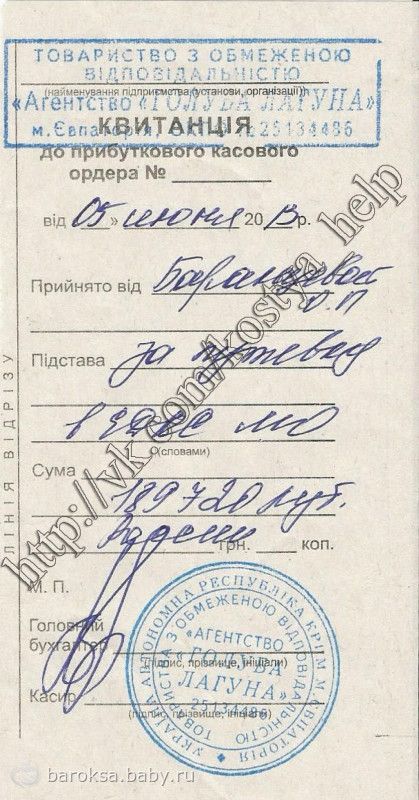 ТОВАРИСТВО З ОБМЕЖЕНОЮ
ВІДПОВІДАЛЬНІСТЮ
(найменування підприємства (установи, організації))
«Агентство «ГОЛУБА ЛАГУНА»
КВИТАНЦІЯ
м. Євпаторія 25134486
до прибуткового касового
ордера №
від «05» июня 2013 р.
Прийнято від
Підстава за путевки
в МО
(словами)
Сума
189720 руб.
грн. коп.
М. П.
Головний
бухгалтер
(підпис, прізвище, ініціали)
Касир
(підпис, прізвище, ініціали)
УКРАЇНА АВТОНОМНА РЕСПУБЛІКА КРИМ М. ЄВПАТОРІЯ
ТОВАРИСТВО З ОБМЕЖЕНОЮ ВІДПОВІДАЛЬНІСТЮ
«АГЕНТСТВО
«ГОЛУБА
ЛАГУНА»
25134486
ЛІНІЯ ВІДРІЗУ
http://vk.com/kostya help
baroksa.baby.ru